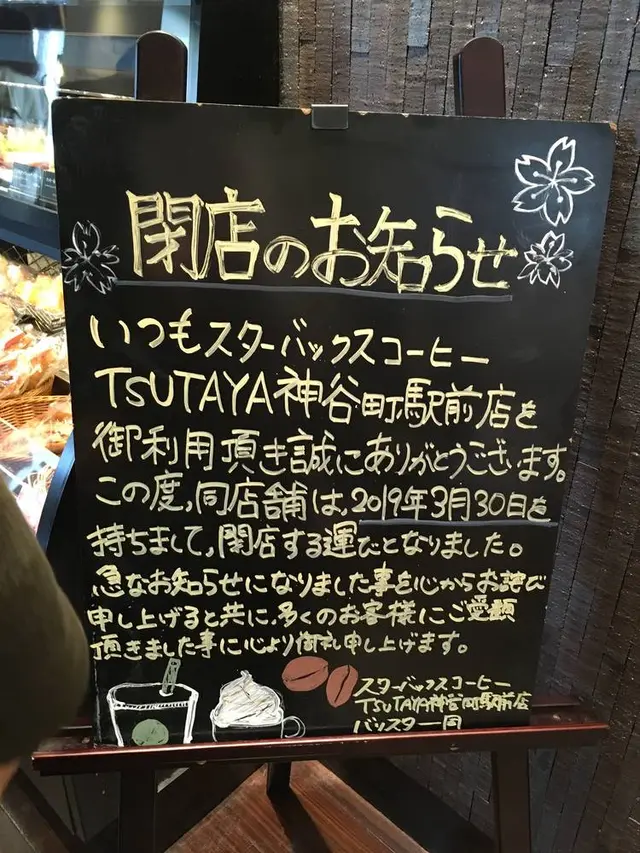 閉店のお知らせ
いつもスターバックスコーヒー
TSUTAYA神谷町駅前店を
御利用頂き誠にありがとうございます。
この度、同店舗は、2019年3月30日を
持ちまして、閉店する運びとなりました。
急なお知らせになりました事を心からお詫び
申し上げると共に、多くのお客様にご愛顧
頂きました事に心より御礼申し上げます。
スターバックスコーヒー
TSUTAYA神谷町駅前店
バリスタ一同